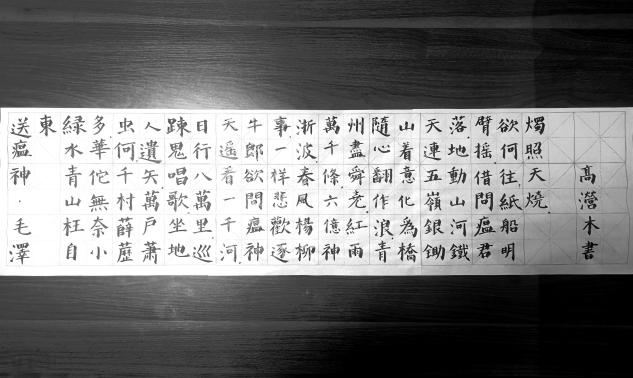 送瘟神·毛澤
東
緑水青山枉自
多華佗無奈小
虫何千村薜藶
人遺矢萬戶蕭
踈鬼唱歌坐地
日行八萬里巡
天遥看一千河
牛郎欲問瘟神
事一样悲歡逐
渐波春風楊柳
萬千條六億神
州盡舜尧紅雨
隨心翻作浪青
山着意化為橋
天連五嶺銀鋤
落地動山河鐵
臂摇借問瘟君
欲何往紙船明
燭照天燒
高瀯木書